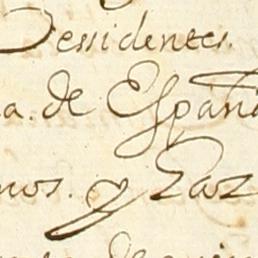 Dessidentes.
a. de España
nos. y Raz